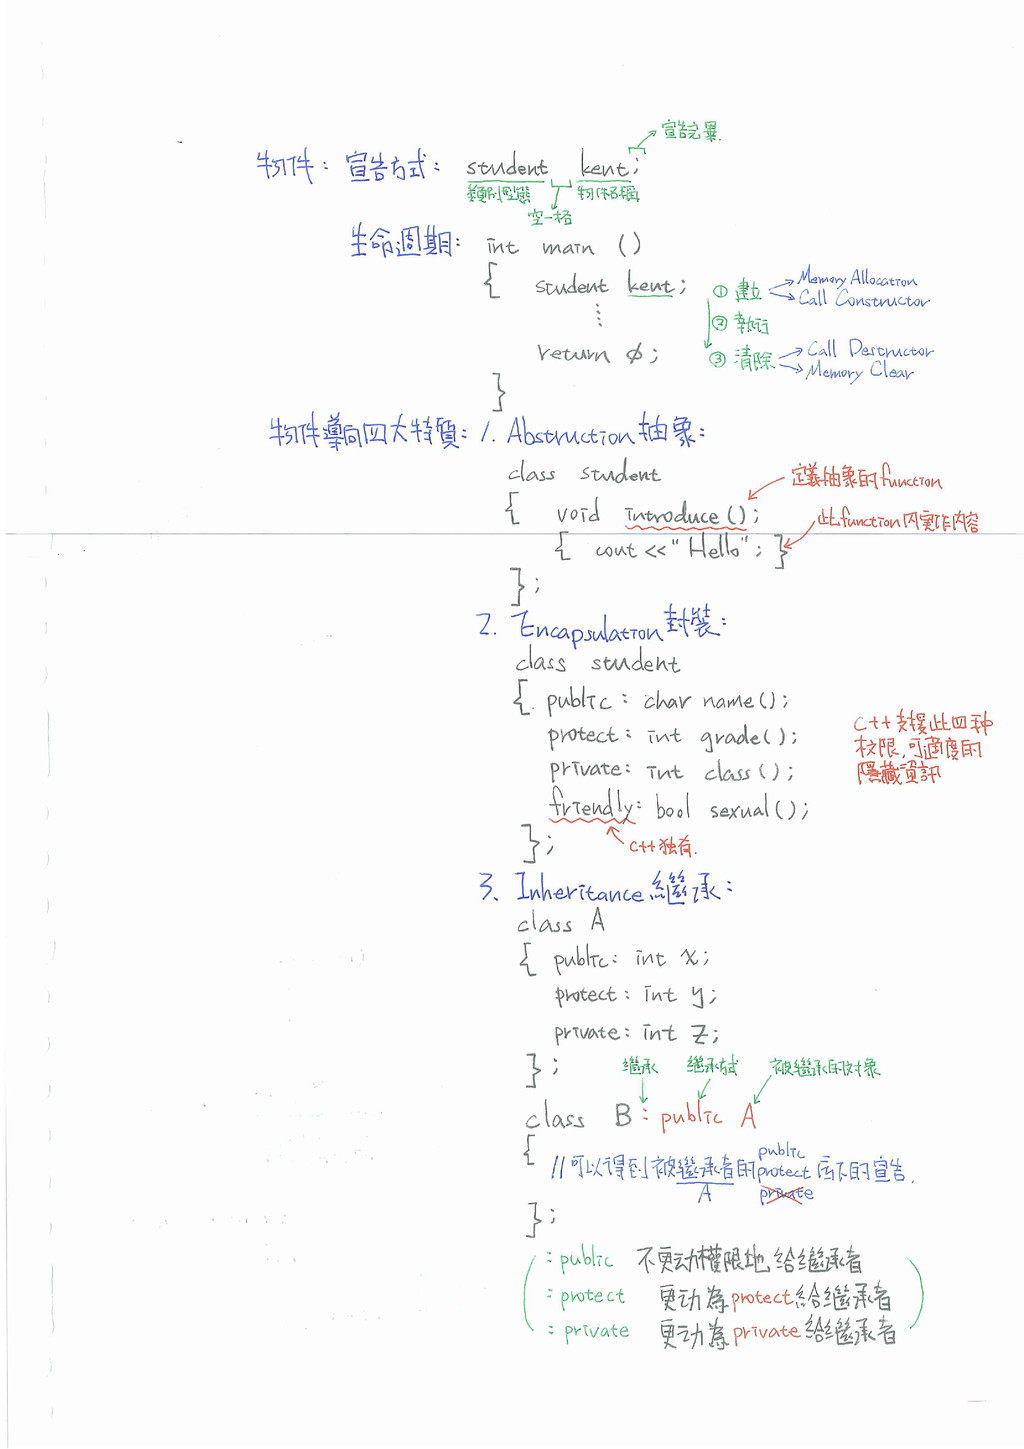 宣告完畢.
物件: 宣告方式: student kent;
類別型態 物件名稱
空一格
生命週期: int main ()
{ student kent; ① 建立 Memory Allocation
Call Constructor
⋮ ② 執行
return 0; ③ 清除 Call Destructor
Memory Clear
}
物件導向四大特質: 1. Abstruction 抽象:
class student
定義抽象的function
{ void introduce();
此function內實作內容
{ cout <<"Hello"; }
};
2. Encapsulation 封裝:
class student
{ public: char name();
protect: int grade();
private: int class();
friendly: bool sexual();
C++支援此四种
权限,可適度的
隱藏資訊
};
C++独有.
3. Inheritance 繼承:
class A
{ public: int x;
protect: int y;
private: int z;
};
繼承 繼承方式 被繼承的対象
class B : public A
{
//可以得到被繼承者的 public protect private 底下的宣告.
A
};
: public 不更动權限地給繼承者
: protect 更动為protect給繼承者
: private 更动為private給繼承者